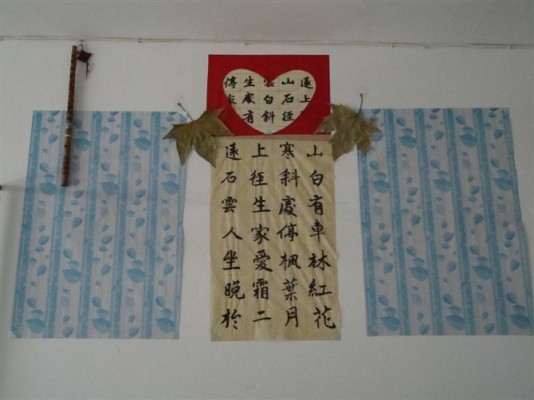 遠上
山石徑
雲白斜
生處有
停家
遠上寒山
石徑斜白
雲生處有
人家停車
坐愛楓林
晚霜葉紅
於二月花